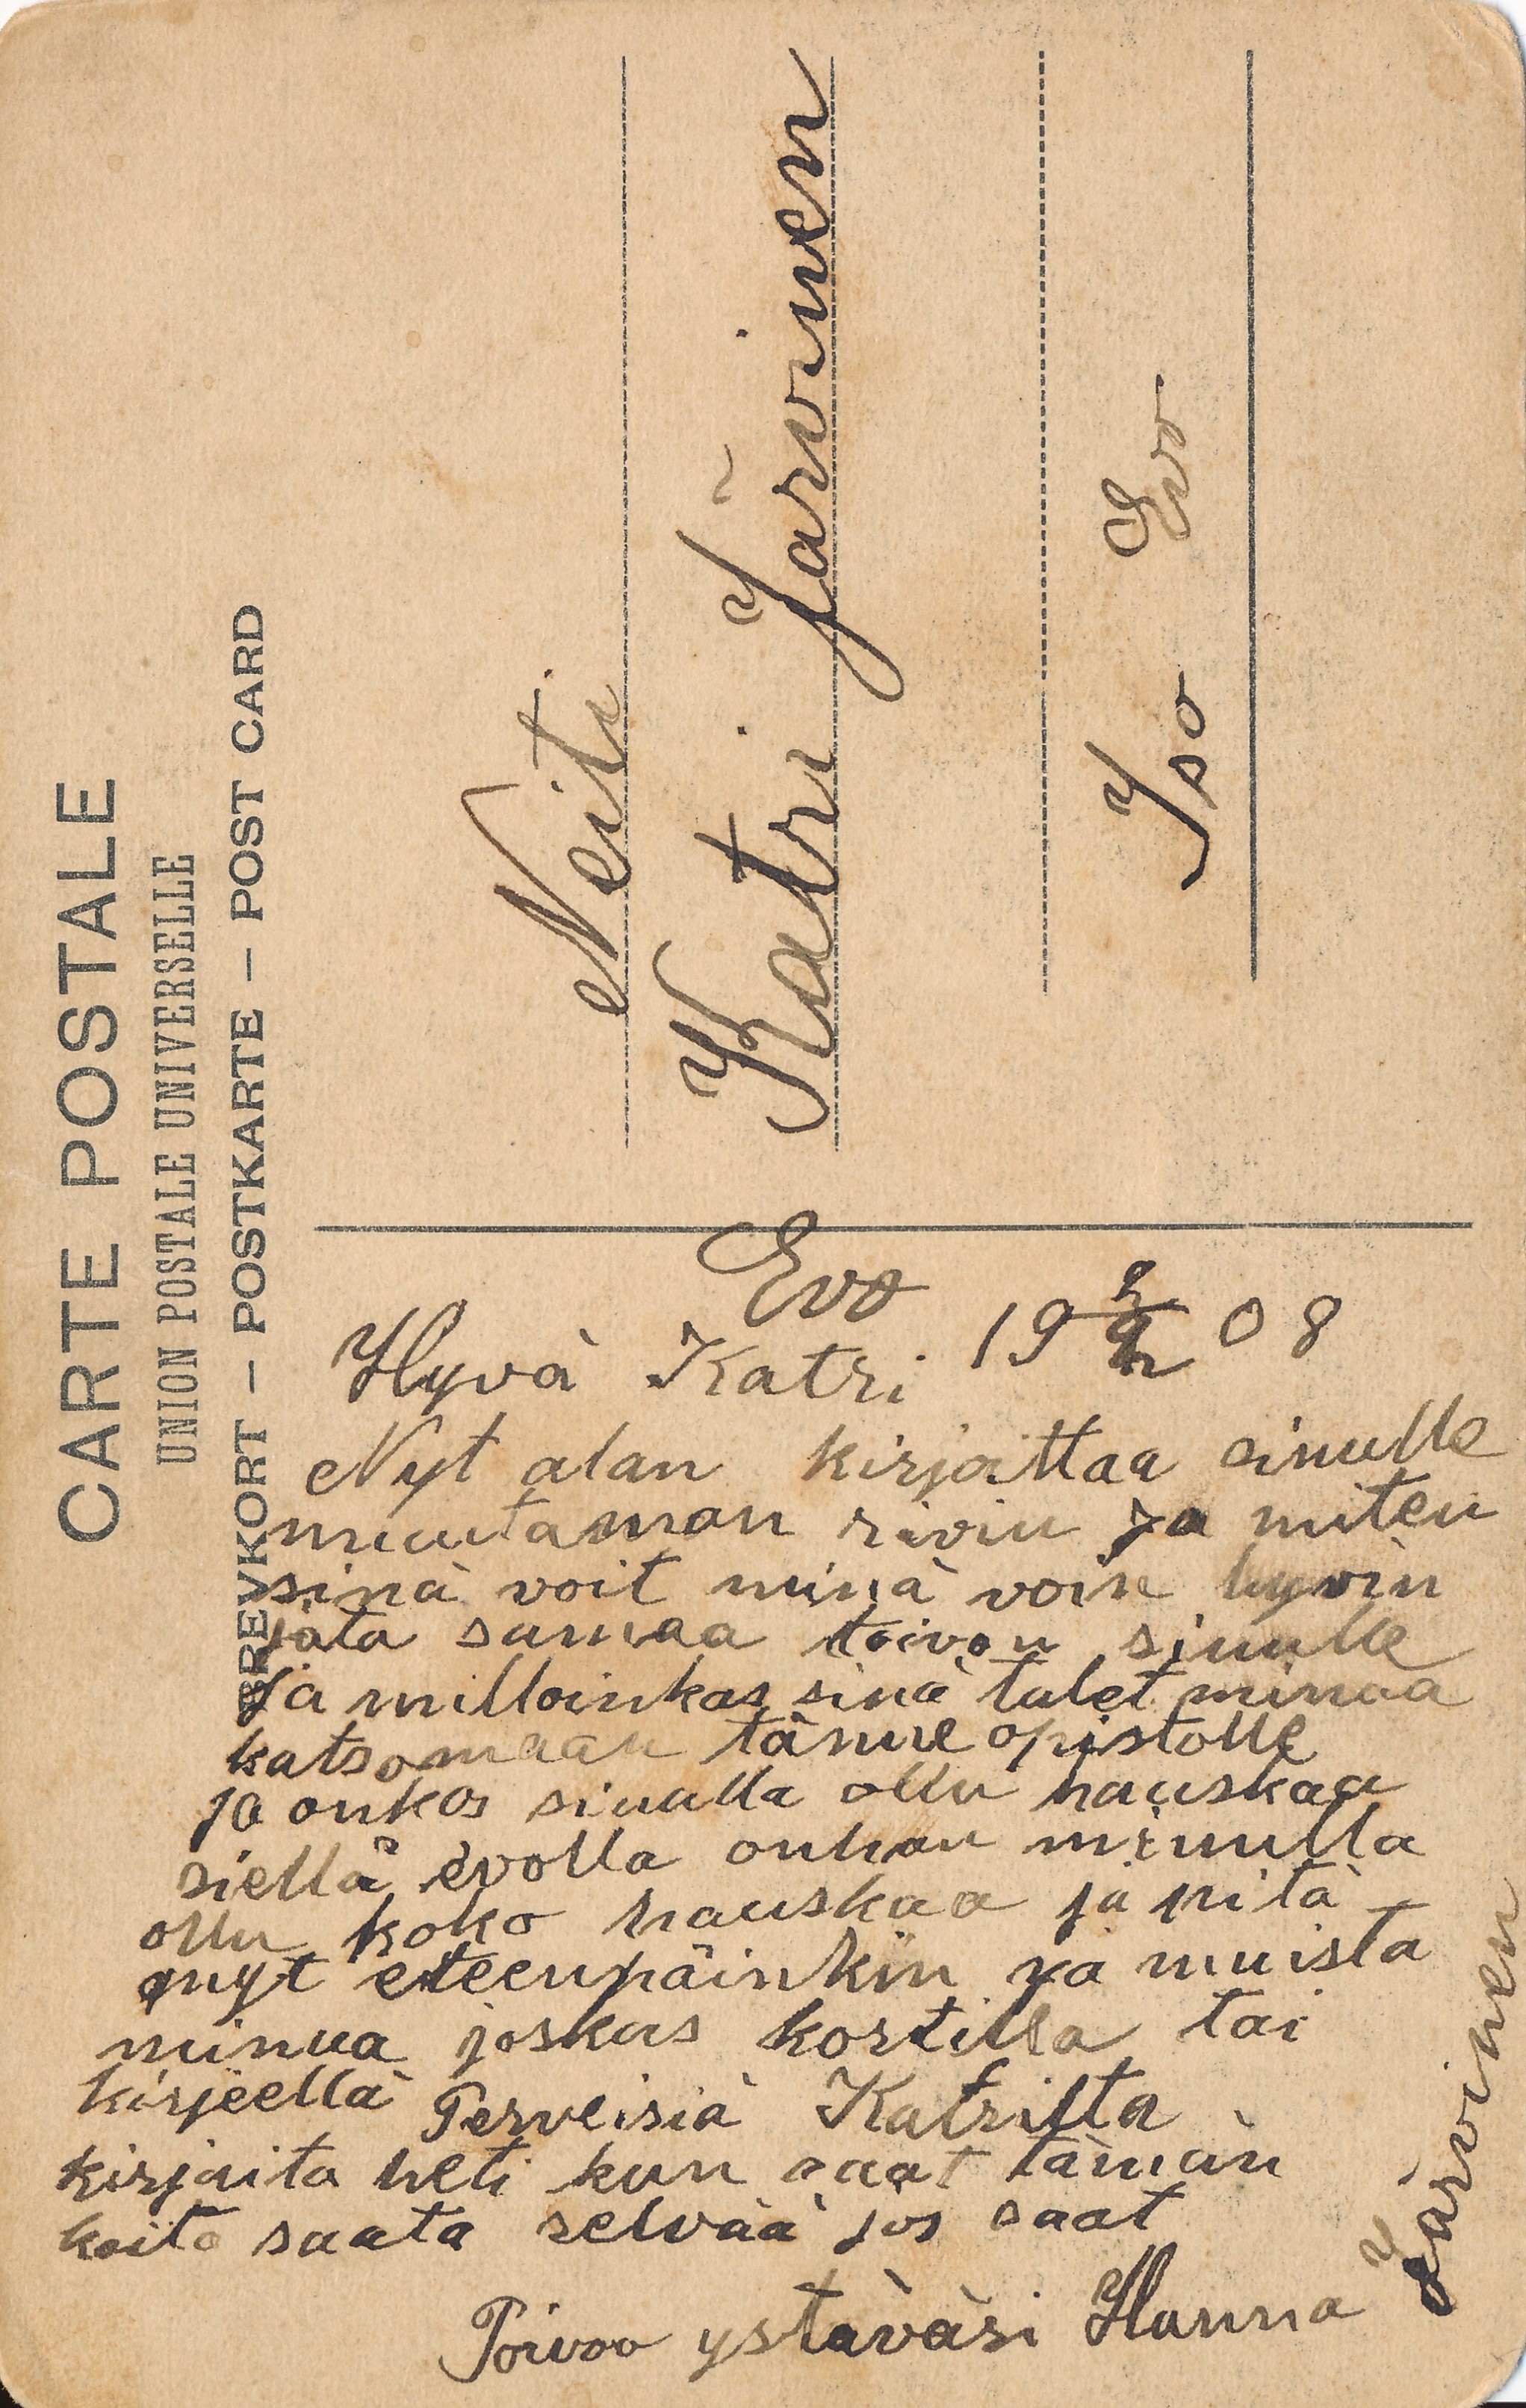 CARTE POSTALE
UNION POSTALE UNIVERSELLE
BREVKORT — POSTKARTE — POST CARD
Neiti
Katri Järvinen
Iso Evo
Evo
19 08
Hyvä Katri
Nyt alan kirjoittaa sinulle
muutaman rivin ja miten
sinä voit minä voin hyvin
jota samaa toivon sinulle
Ja milloinkas sinä tulet minua
katsomaan tänne opistolle
ja onkos sinulla ollu hauskaa
siellä evolla onhan minulla
ollu koko hauskaa ja nitä
nyt eteenpäinkin ja muista
minua joskus kortilla tai
kirjeellä Terveisiä Katrilta
kirjoita heti kun saat tämän
koita saata selvää jos saat
Toivoo ystäväsi Hanna Järvinen